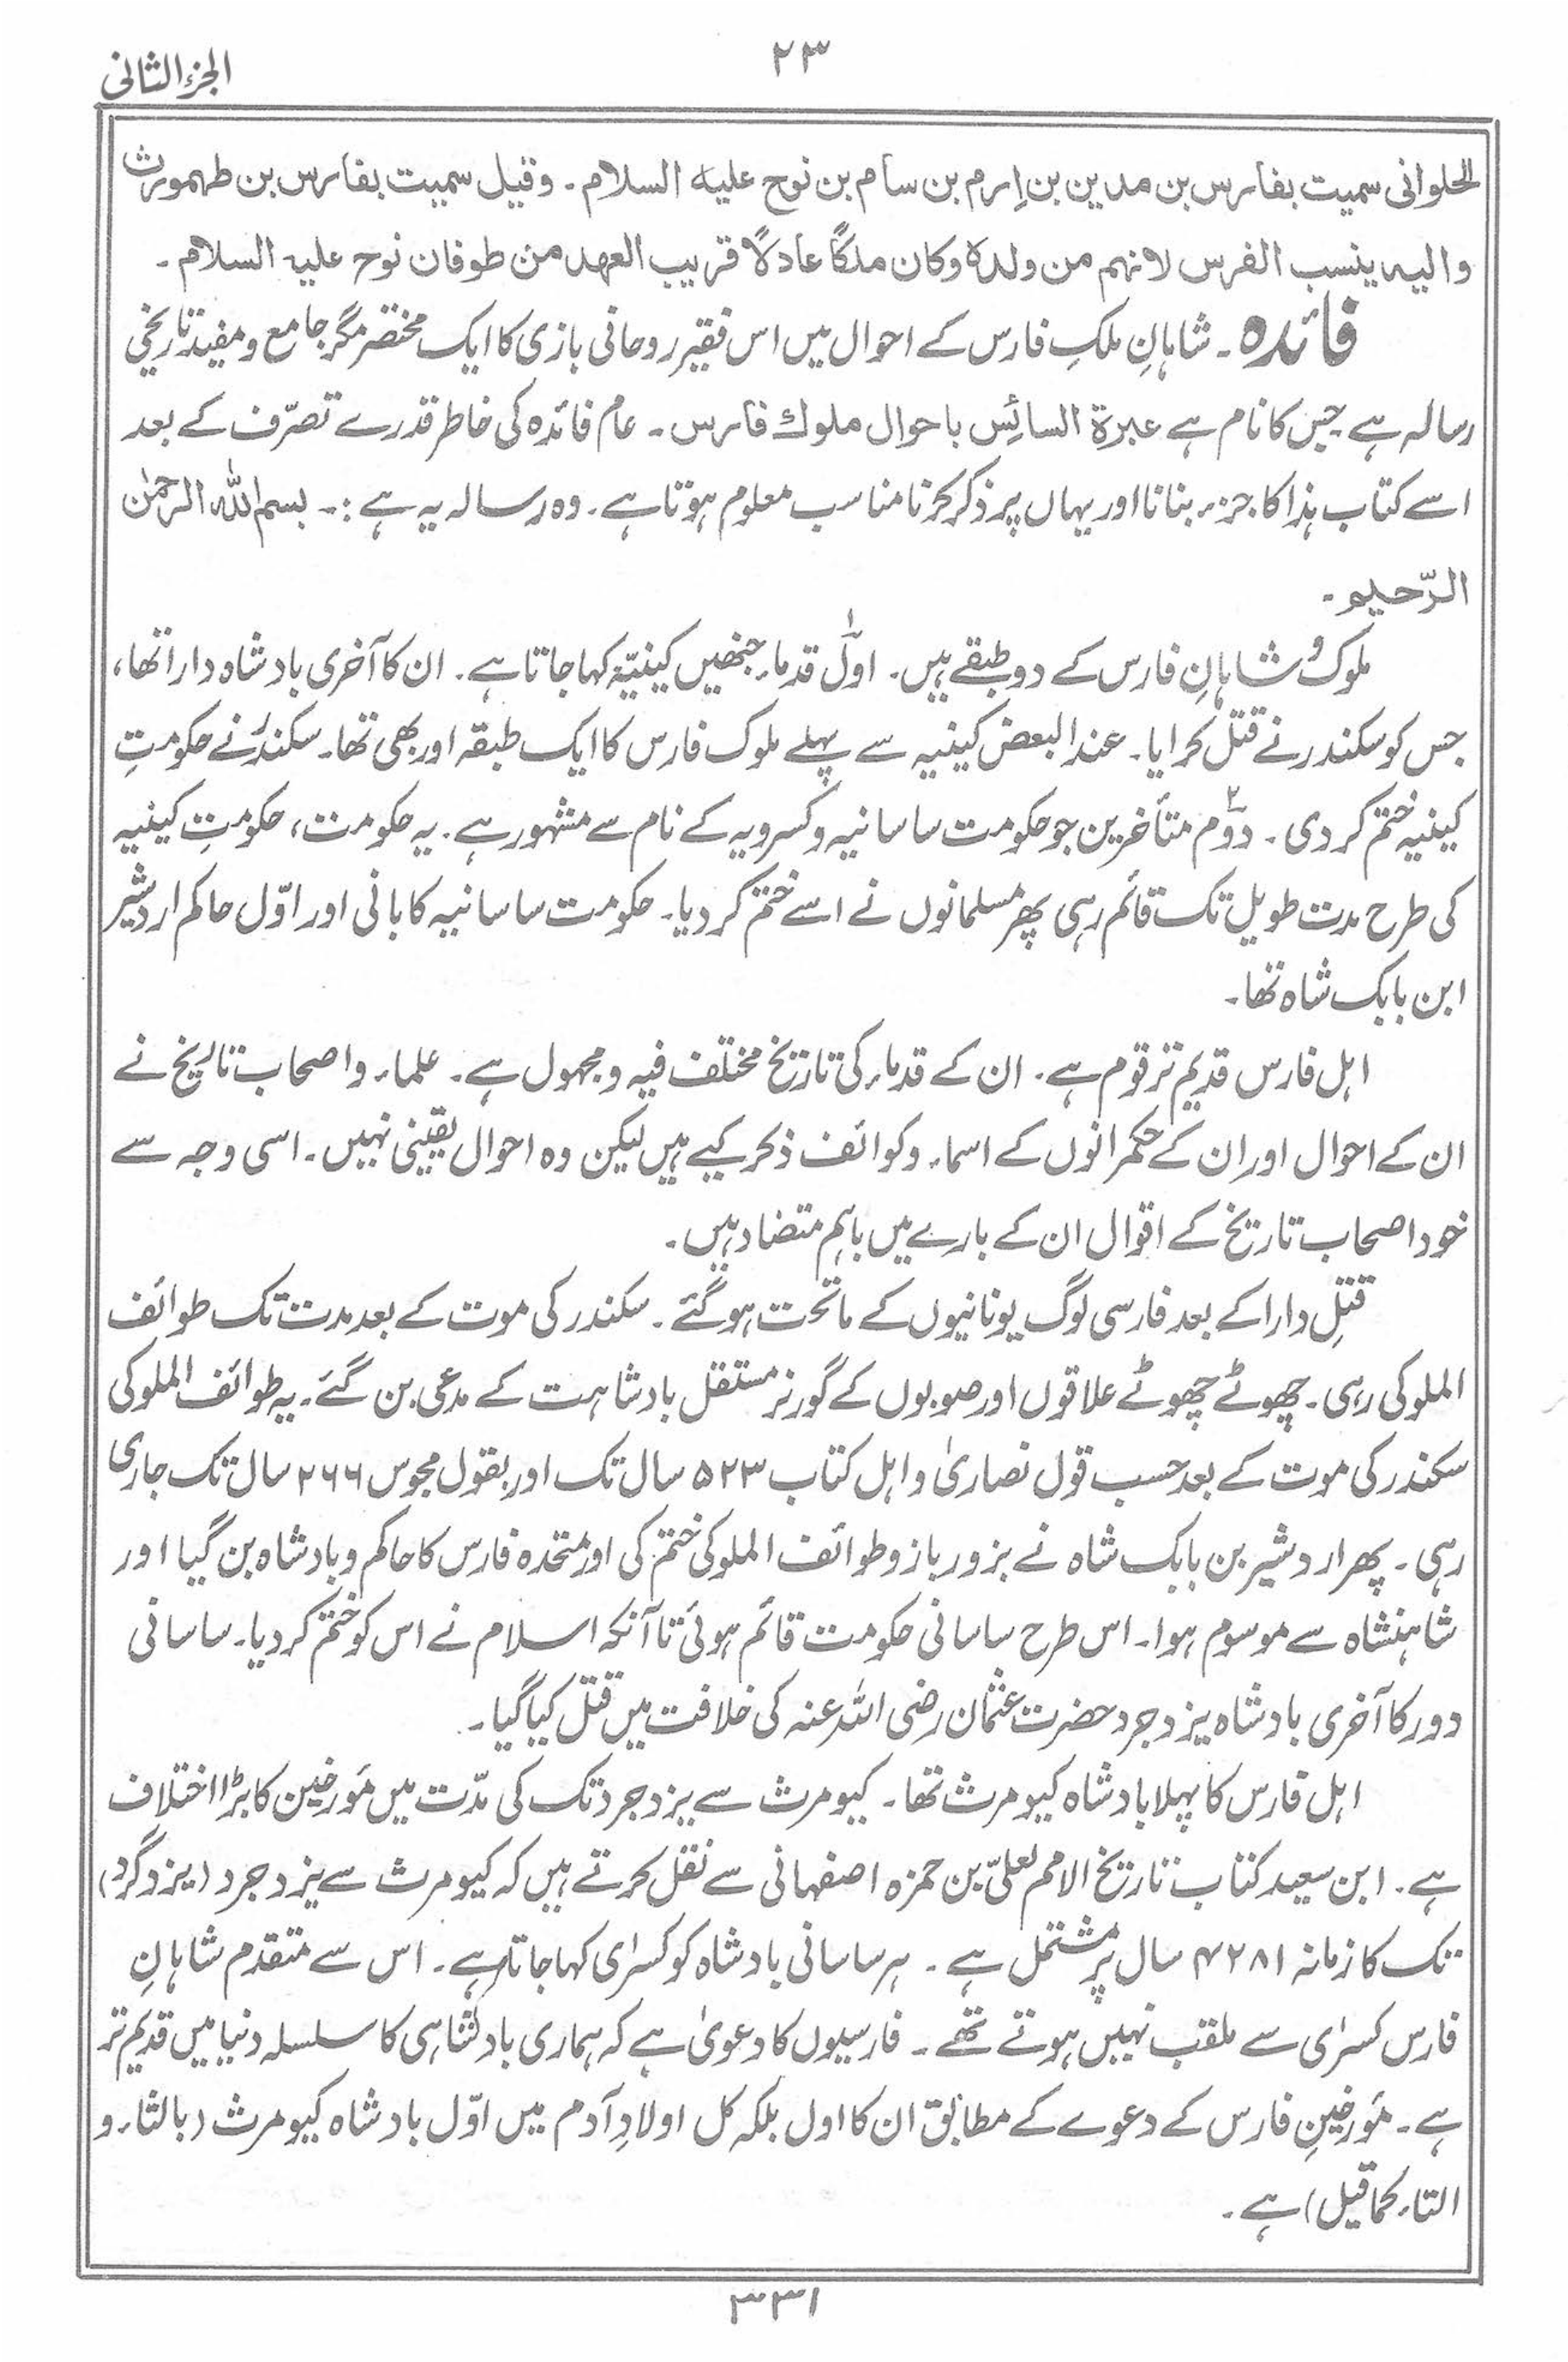 ۲۳
الجزء الثانی
الحلوانی سمیت بفارس بن مدین بن اِرم بن سام بن نوح علیه السلام ۔ وقیل سمیت بفارس بن طهمورث
والیه ینسب الفرس لانهم من ولده وکان ملکًا عادلًا قریب العهد من طوفان نوح علیہ السلام ۔
فائدہ ۔ شاہانِ ملکِ فارس کے احوال میں اس فقیر روحانی بازی کا ایک مختصر مگر جامع و مفید تاریخی
رسالہ ہے جس کا نام ہے عبرة السائِس باحوال ملوك فارس ۔ عام فائدہ کی خاطر قدرے تصرّف کے بعد
اسے کتاب ہٰذا کا جزء بنانا اور یہاں پر ذکر کرنا مناسب معلوم ہوتا ہے ۔ وہ رسالہ یہ ہے :۔ بسم اللہ الرحمٰن
الرّحیم ۔
ملوک و شاہانِ فارس کے دو طبقے ہیں ۔ اوّل۱ قدماء جنھیں کینیّہ کہا جاتا ہے ۔ ان کا آخری بادشاہ دارا تھا،
جس کو سکندر نے قتل کرایا ۔ عند البعض کینیہ سے پہلے ملوک فارس کا ایک طبقہ اور بھی تھا ۔ سکندر نے حکومتِ
کینیہ ختم کر دی ۔ دوّم۲ متأخرین جو حکومت ساسانیہ و کسرویہ کے نام سے مشہور ہے ۔ یہ حکومت، حکومتِ کینیہ
کی طرح مدت طویل تک قائم رہی پھر مسلمانوں نے اسے ختم کر دیا ۔ حکومت ساسانیہ کا بانی اور اوّل حاکم اردشیر
ابن بابک شاہ تھا ۔
اہل فارس قدیم تر قوم ہے ۔ ان کے قدماء کی تاریخ مختلف فیہ و مجہول ہے ۔ علماء و اصحاب تاریخ نے
ان کے احوال اور ان کے حکمرانوں کے اسماء و کوائف ذکر کیے ہیں لیکن وہ احوال یقینی نہیں ۔ اسی وجہ سے
خود اصحاب تاریخ کے اقوال ان کے بارے میں باہم متضاد ہیں ۔
قتلِ دارا کے بعد فارسی لوگ یونانیوں کے ماتحت ہو گئے ۔ سکندر کی موت کے بعد مدت تک طوائف
الملوکی رہی ۔ چھوٹے چھوٹے علاقوں اور صوبوں کے گورنر مستقل بادشاہت کے مدعی بن گئے ۔ یہ طوائف الملوکی
سکندر کی موت کے بعد حسب قول نصاریٰ و اہل کتاب ۵۲۳ سال تک اور بقول مجوس ۲۶۶ سال تک جاری
رہی ۔ پھر اردشیر بن بابک شاہ نے بزور بازو طوائف الملوکی ختم کی اور متحدہ فارس کا حاکم و بادشاہ بن گیا اور
شاہنشاہ سے موسوم ہوا ۔ اس طرح ساسانی حکومت قائم ہوئی تا آنکہ اسلام نے اس کو ختم کر دیا ۔ ساسانی
دور کا آخری بادشاہ یزدجرد حضرت عثمان رضی اللہ عنہ کی خلافت میں قتل کیا گیا ۔
اہل فارس کا پہلا بادشاہ کیومرث تھا ۔ کیومرث سے یزدجرد تک کی مدّت میں مؤرخین کا بڑا اختلاف
ہے ۔ ابن سعید کتاب تاریخ الامم لعلیّ بن حمزہ اصفہانی سے نقل کرتے ہیں کہ کیومرث سے یزدجرد (یزدگرد)
تک کا زمانہ ۴۲۸۱ سال پر مشتمل ہے ۔ ہر ساسانی بادشاہ کو کسرٰی کہا جاتا ہے ۔ اس سے متقدم شاہانِ
فارس کسرٰی سے ملقب نہیں ہوتے تھے ۔ فارسیوں کا دعویٰ ہے کہ ہماری بادشاہی کا سلسلہ دنیا میں قدیم تر
ہے ۔ مؤرخینِ فارس کے دعوے کے مطابق ان کا اول بلکہ کل اولادِ آدم میں اوّل بادشاہ کیومرث (بالثاء و
التاء کما قیل) ہے ۔
۳۳۱